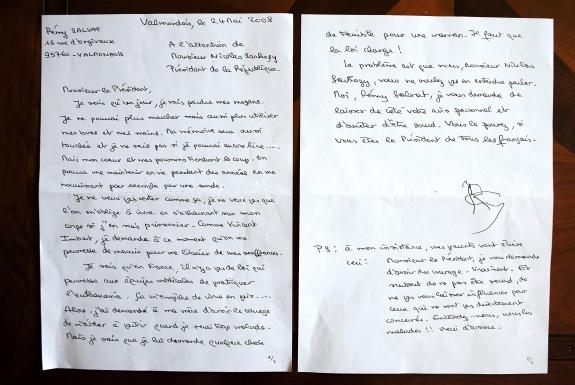 Rémy SALVAT
16 rue d'orgivaux
95760 - VALMONDOIS
Valmondois, le 2 Mai 2008
A l'attention de
Monsieur Nicolas Sarkozy
Président de la République.
Monsieur le Président,
Je sais qu'un jour, je vais perdre mes moyens.
Je ne pourrai plus marcher mais aussi plus utiliser
mes bras et mes mains. Ma mémoire sera aussi
touchée et je ne sais pas si je pourrai encore lire ....
Mais mon cœur et mes poumons tiendront le coup. On
pourra me maintenir en vie pendant des années en me
nourrissant par exemple par une sonde.
Je ne veux pas rester comme ça, je ne veux pas que
l'on m'oblige à vivre en s'acharnant sur mon
corps si j'en suis prisonnier. Comme Vincent
Imbert, je demande à ce moment qu'on me
permette de mourir pour me libérer de mes souffrances.
Je sais qu'en France, il n'y a pas de loi qui
permette aux équipes médicales de pratiquer
l'euthanasie. Ça m'empêche de vivre en paix....
Alors, j'ai demandé à ma mère d'avoir le courage
de m'aider à partir quand je serai trop malade.
Mais je sais que je lui demande quelque chose
1/2
de terrible pour une maman. Il faut que
la loi change !
Le problème est que vous, Monsieur Nicolas
Sarkozy, vous ne voulez pas en entendre parler.
Moi, Rémy Salvat, je vous demande de
laisser de côté votre avis personnel et
d'arrêter d'être sourd. Vous le pouvez, si
vous êtes le Président de Tous les français.
PS : à mon insistance, mes parents vont écrire
ceci : Monsieur le Président, je vous demande
d'avoir du courage. Vraiment. Et
surtout de ne pas être sourd, de
ne pas vous laisser influencer par
ceux qui ne sont pas directement
concernés. Entendez-nous, nous les
malades !! Merci d'avance.
2/2